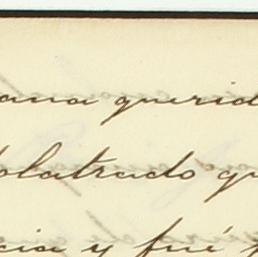 ana querid
olatrado qu
cia y fué p